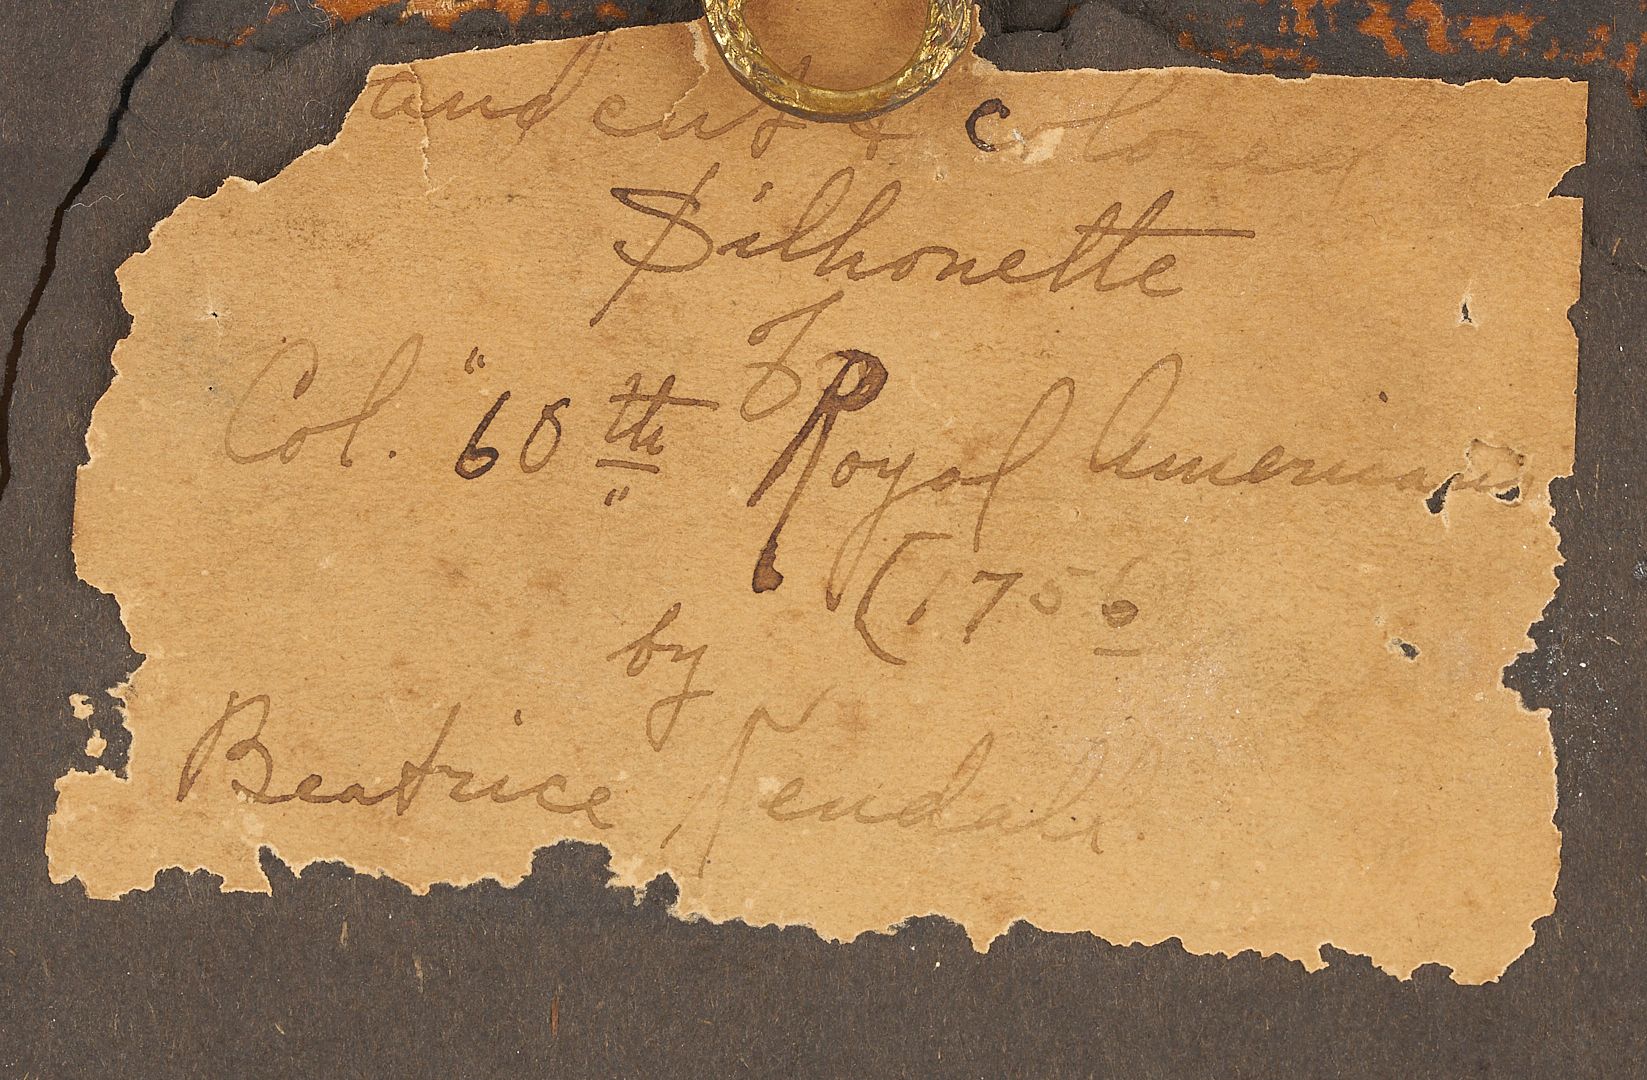 and cut & colored
Silhouette
of
Col. "60th" Royal Americans
(1756
by
Beatrice Kendall